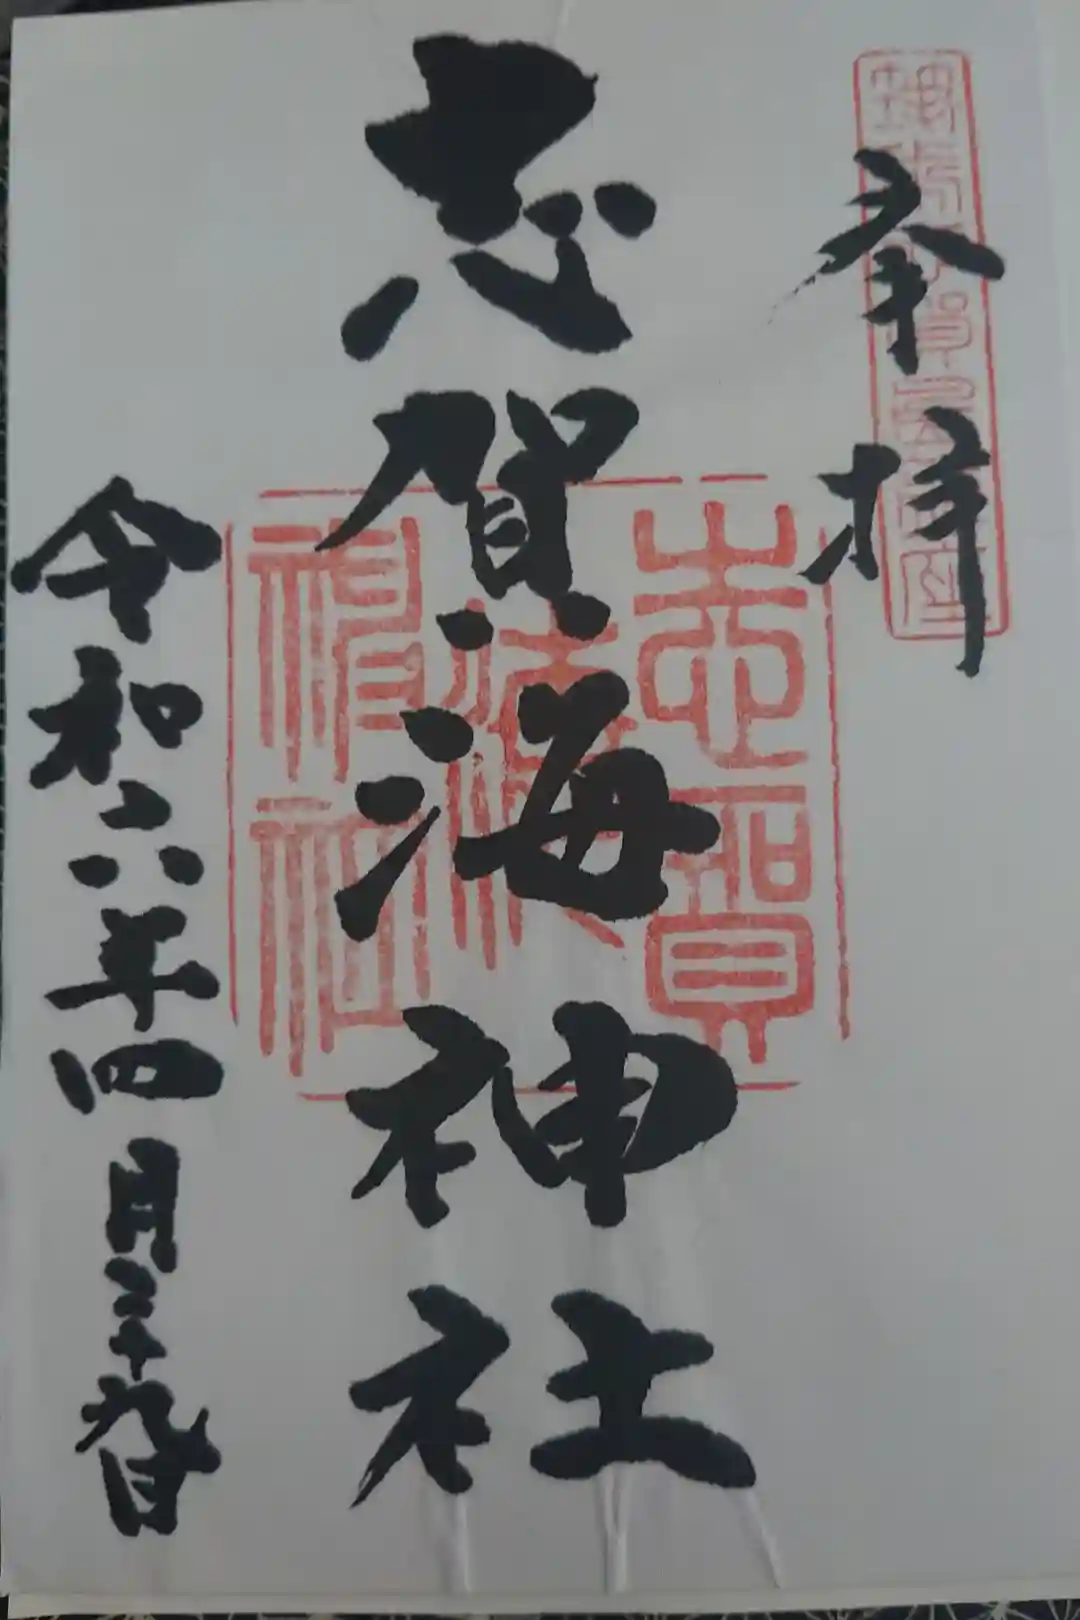 奉拝
志賀海神社
志賀海神社
令和六年四月二十九日